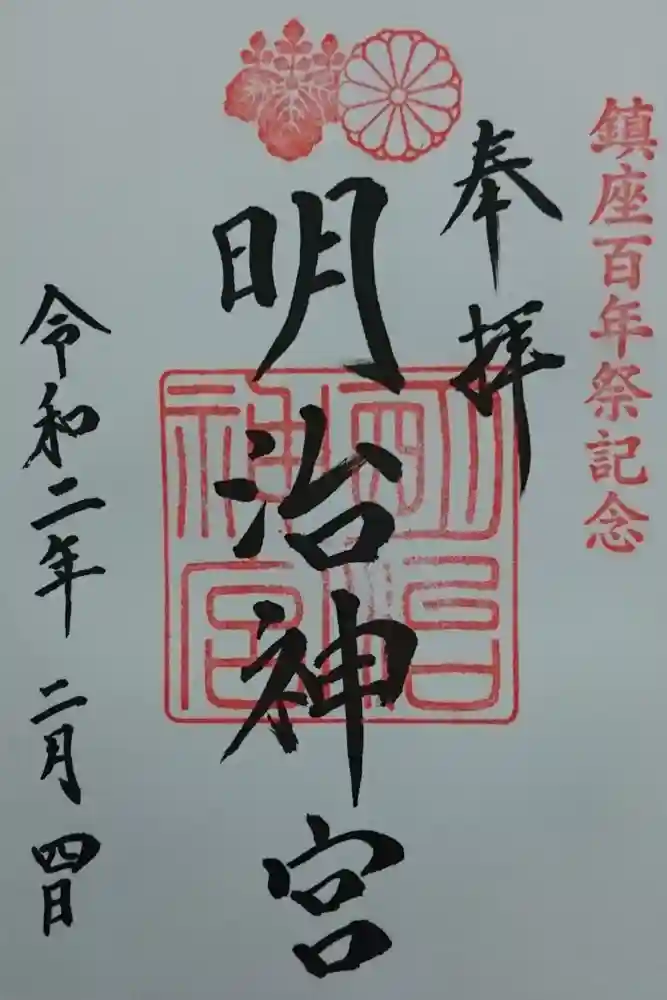 鎮座百年祭記念
奉拝
明治神宮
明治神宮
令和二年 二月 四日